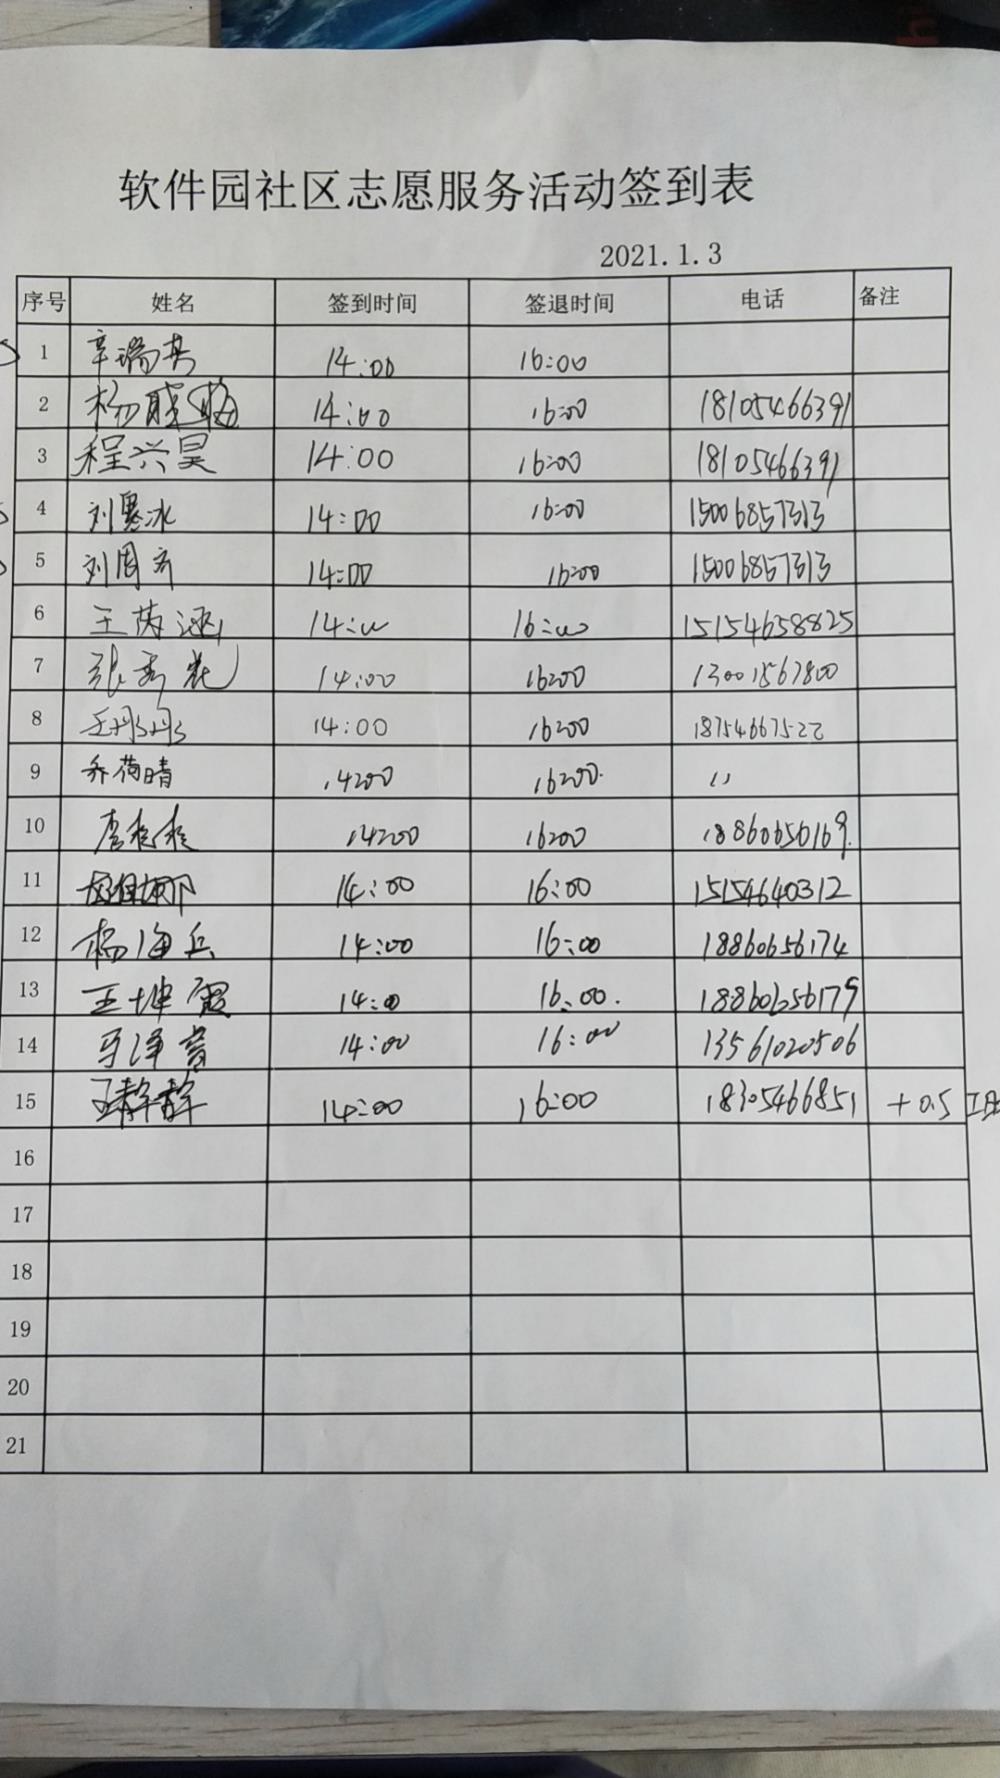 软件园社区志愿服务活动签到表
2021.1.3
序号 姓名 签到时间 签退时间 电话 备注
1 辛瑞芬 14:00 16:00
2 杨晓梅 14:00 16:00 18105466391
3 程兴昊 14:00 16:00 18105466391
4 刘寒冰 14:00 16:00 15006857313
5 刘周齐 14:00 16:00 15006857313
6 王芮涵 14:00 16:00 15154658825
7 张秀花 14:00 16:00 13001567800
8 王丹丹 14:00 16:00 18754667522
9 乔荷晴 14:00 16:00 11
10 14:00 16:00 18860656169
11 14:00 16:00 15154640312
12 杨海兵 14:00 16:00 18860656174
13 王坤霞 14:00 16:00. 18860656179
14 14:00 16:00 13561020506
15 王静静 14:00 16:00 18305466851 +0.5
16
17
18
19
20
21